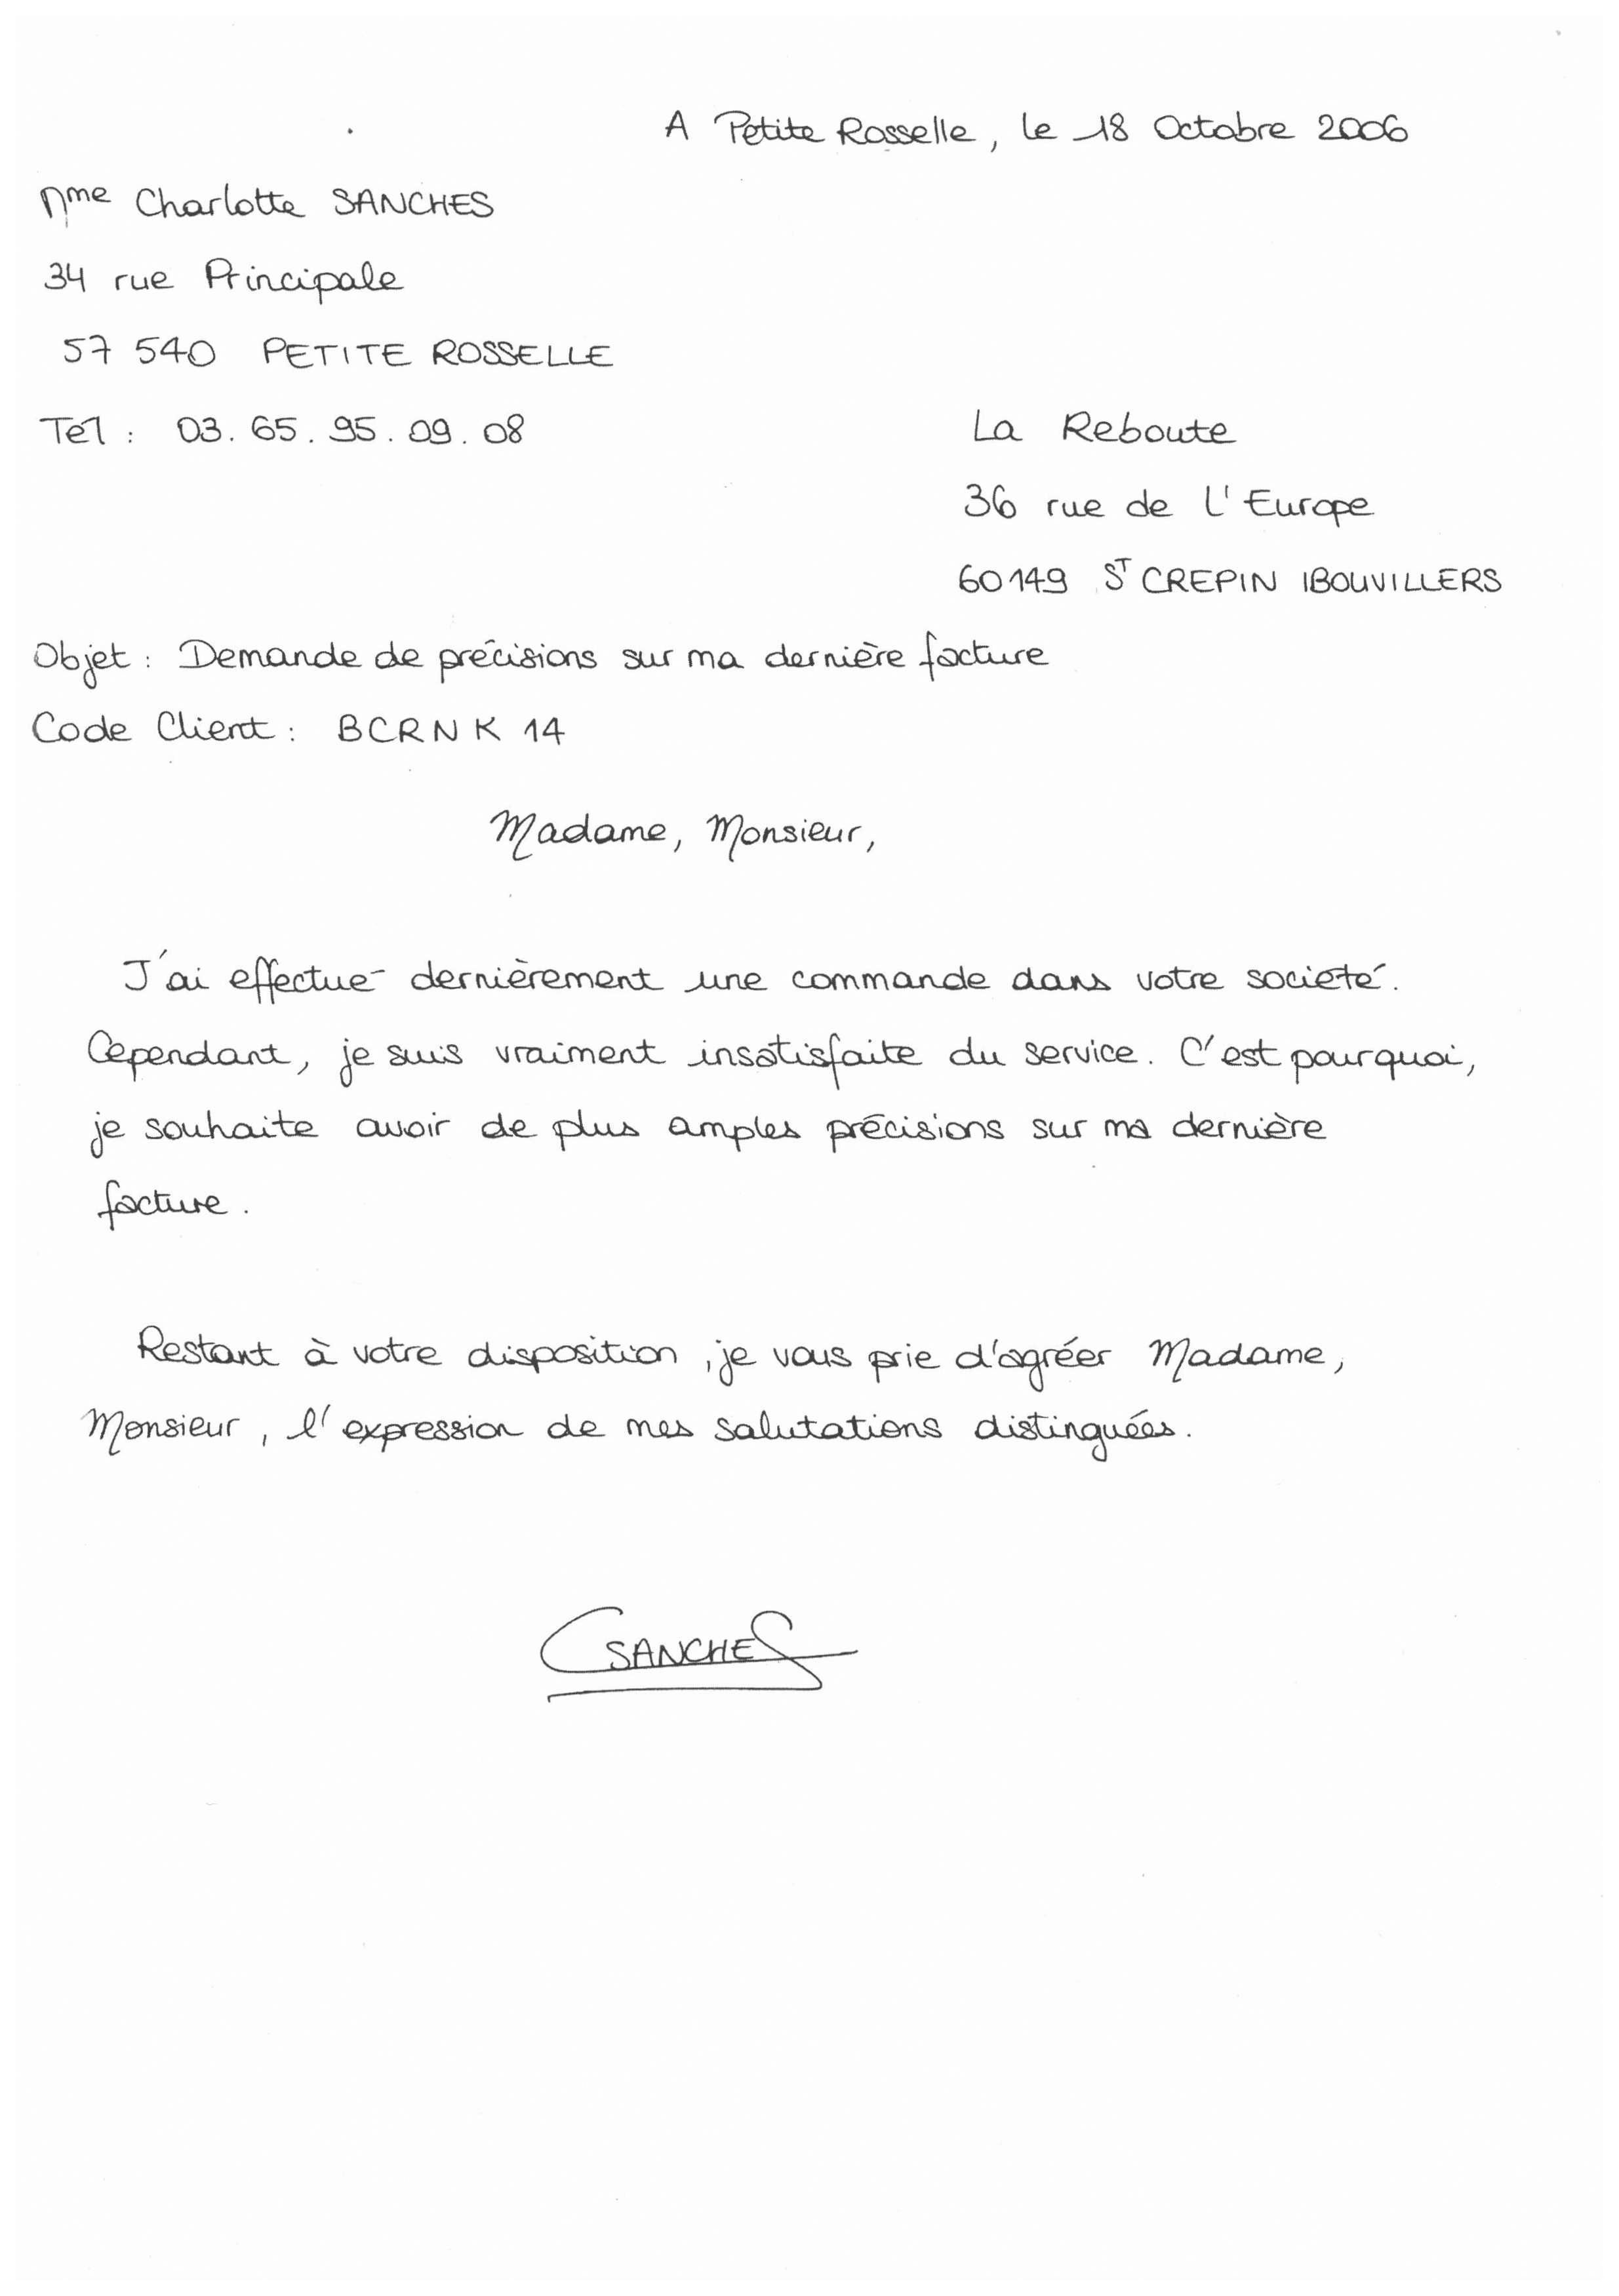 A Petite Rosselle, le 18 Octobre 2006
Mme Charlotte SANCHES
34 rue Principale
57 540 PETITE ROSSELLE
Tél : 03. 65. 95. 09. 08
La Reboute
36 rue de l'Europe
60149 ST CREPIN IBOUVILLERS
Objet : Demande de précisions sur ma dernière facture
Code Client : BCRNK 14
Madame, Monsieur,
J'ai effectué dernièrement une commande dans votre société.
Cependant, je suis vraiment insatisfaite du service. C'est pourquoi,
je souhaite avoir de plus amples précisions sur ma dernière
facture.
Restant à votre disposition, je vous prie d'agréer Madame,
Monsieur, l'expression de mes salutations distinguées.
CSANCHES